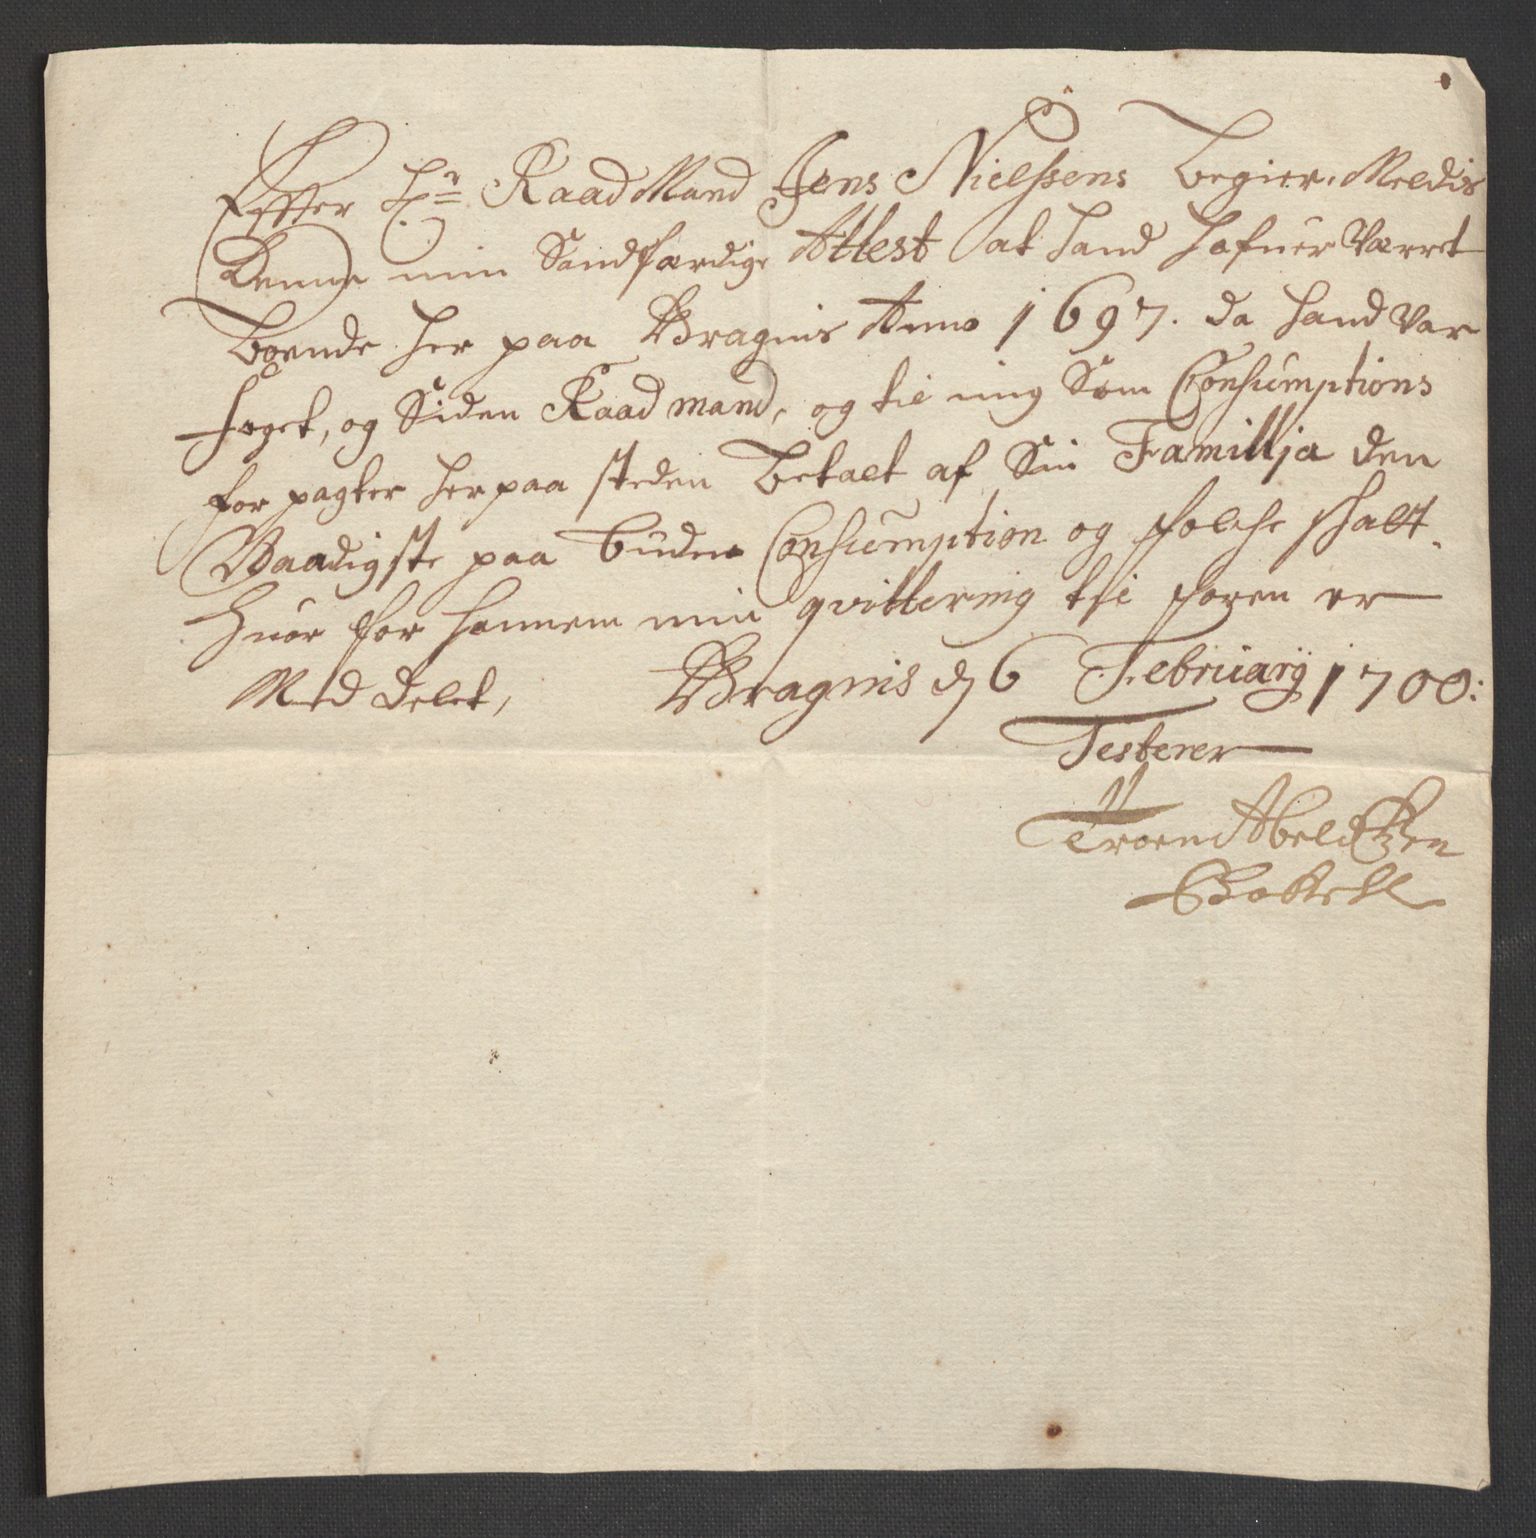 Effter Hr: Raad Mand Jens Nielssens begier, Meldis
Denne min Sandfærdige Attest at hand hafuer Værret
boende her paa Bragnis Anno 1697. da hand Var
foget, og Siden Raad mand, og til mig Som Consumptions
for pagter her paa steden betalt af Sin Familljа den
paa Consumption og folche skatt.
Huor for hannem min qvittering til foren er
Med deelt, Bragnis d 6 February 1700:
Testerer
Troen Abelssen